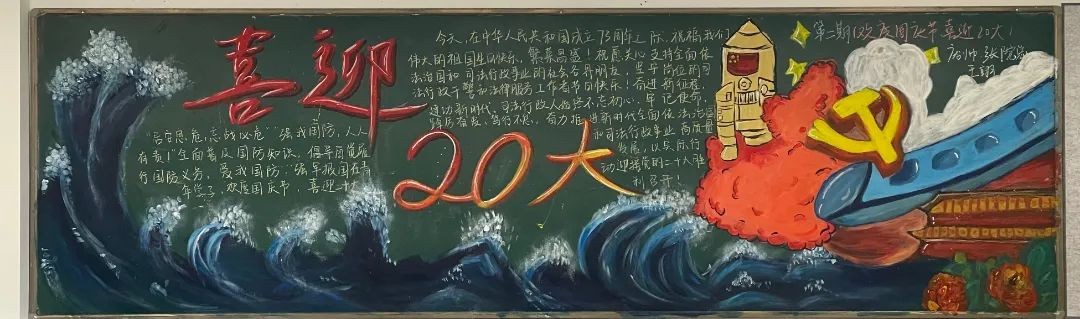 喜迎
20大
今天,在中华人民共和国成立73周年之际,祝福我们
伟大的祖国生日快乐、繁荣昌盛!祝愿关心支持全面依
法治国和司法行政事业的社会各界朋友,坚守岗位的司
法行政干警和法律服务工作者节日快乐!奋进新征程,
建功新时代,司法行政人始终不忘初心,牢记使命,
踔厉奋发、笃行不怠,奋力推进新时代全面依法治国
和司法行政事业高质量
发展,以实际行
动迎接党的二十大胜
利召开!
"居安思危,忘战必危"强我国防,人人
有责!全面普及国防知识,倡导
行国防义务,爱我国防"强军报国在青
年学子 欢度国庆节,喜迎二十大
第二期《欢度国庆节 喜迎20大》